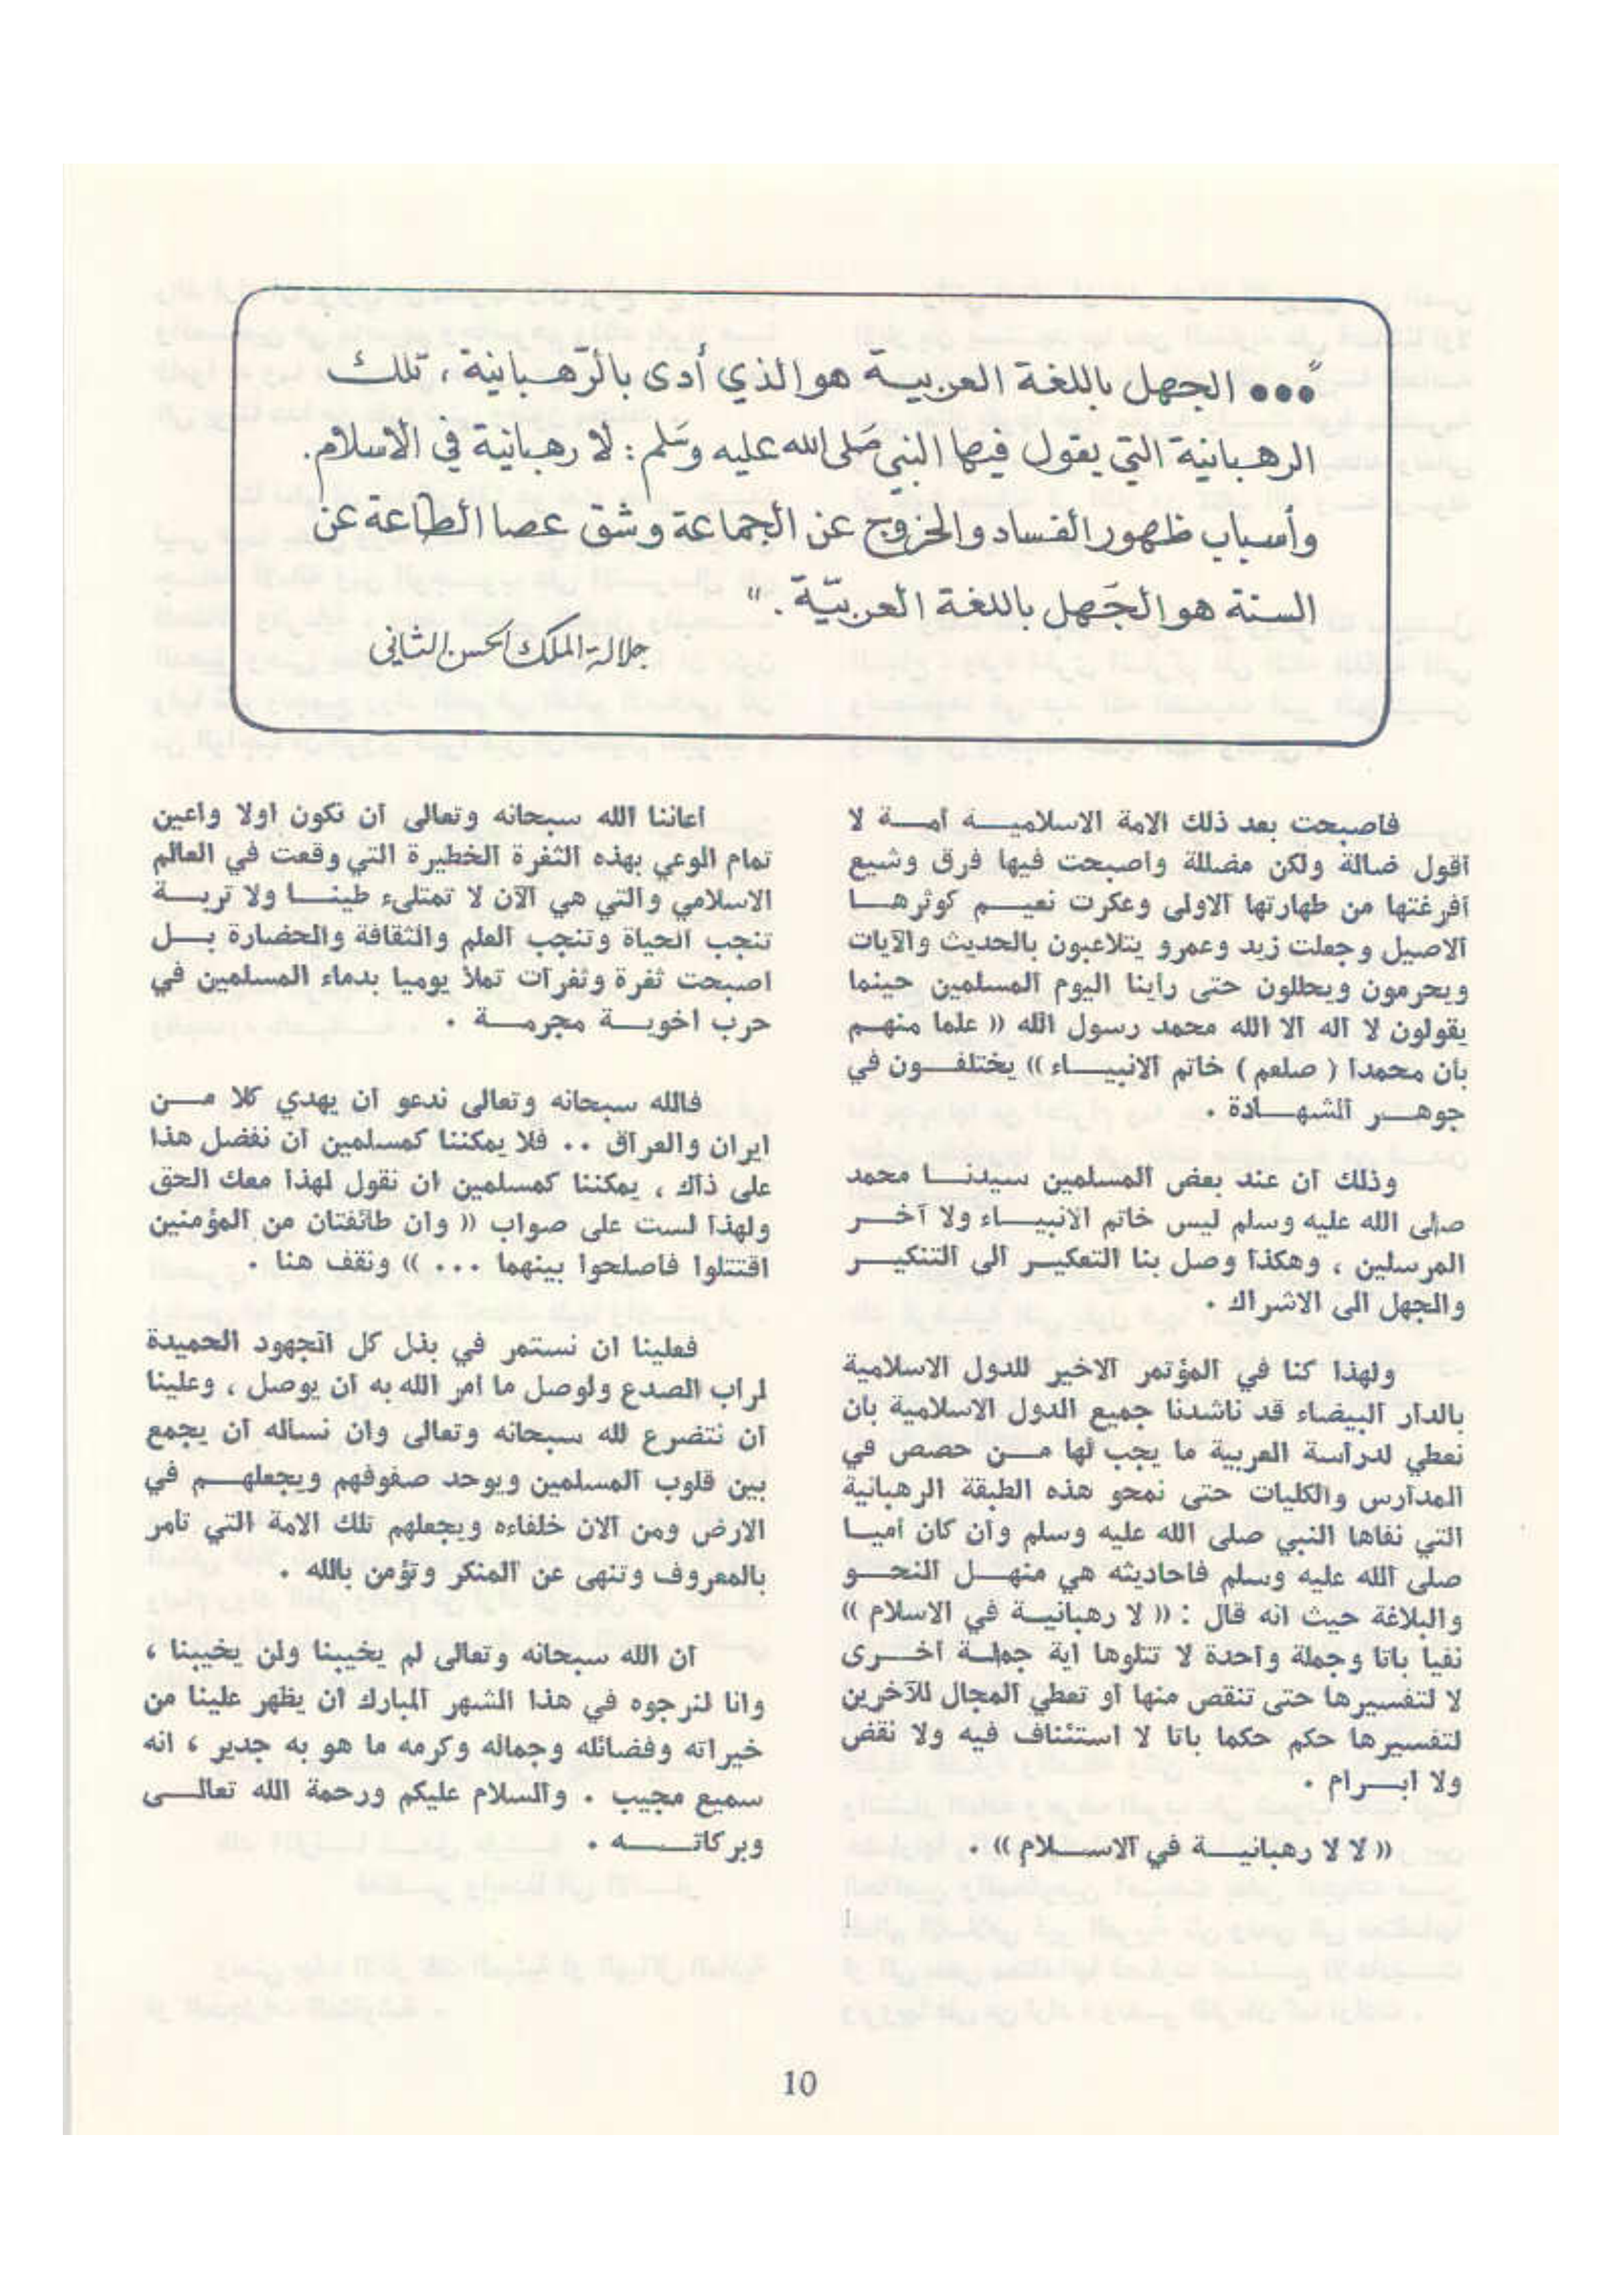 "... الجهل باللغة العربية هو الذي أدى بالرّهبانية، تلك
الرهبانية التي يقول فيها النبي صَلى الله عليه وسَلم : لا رهبانية في الاسلام.
وأسباب ظهور الفساد والخروج عن الجماعة وشق عصا الطاعة عن
السنة هو الجَهل باللغة العربيّة . "
جلالة الملك الحسن الثاني
فاصبحت بعد ذلك الامة الاسلاميـــة أمـــة لا
اقول ضالة ولكن مضللة واصبحت فيها فرق وشيع
أفرغتها من طهارتها الاولى وعكرت نعيـــم كوثرهـــا
الاصيل وجعلت زيد وعمرو يتلاعبون بالحديث والآيات
ويحرمون ويحللون حتى رأينا اليوم المسلمين حينما
يقولون لا اله الا الله محمد رسول الله (( علما منهـــم
بأن محمدا ( صلعم ) خاتم الانبيـــاء )) يختلفـــون في
جوهـــر الشهـــادة .
وذلك أن عند بعض المسلمين سيدنـــا محمد
صلى الله عليه وسلم ليس خاتم الانبيـــاء ولا آخـــر
المرسلين ، وهكذا وصل بنا التعكيـــر الى التنكيـــر
والجهل الى الاشراك .
ولهذا كنا في المؤتمر الاخير للدول الاسلامية
بالدار البيضاء قد ناشدنا جميع الدول الاسلامية بان
نعطي لدراسة العربية ما يجب لها مـــن حصص في
المدارس والكليات حتى نمحو هذه الطبقة الرهبانية
التي نفاها النبي صلى الله عليه وسلم وان كان أميـــا
صلى الله عليه وسلم فاحاديثه هي منهـــل النحـــو
والبلاغة حيث انه قال : (( لا رهبانيـــة في الاسلام ))
نفيا باتا وجملة واحدة لا تتلوها اية جملـــة أخـــرى
لا لتفسيرها حتى تنقص منها أو تعطي المجال للآخرين
لتفسيرها حكم حكما باتا لا استئناف فيه ولا نقض
ولا ابـــرام .
(( لا لا رهبانيـــة في الاســـلام )) .
أعاننا الله سبحانه وتعالى أن نكون أولا واعين
تمام الوعي بهذه الثغرة الخطيرة التي وقعت في العالم
الاسلامي والتي هي الآن لا تمتلىء طينـــا ولا تربـــة
تنجب الحياة وتنجب العلم والثقافة والحضارة بـــل
أصبحت ثغرة وثغرات تملأ يوميا بدماء المسلمين في
حرب اخويـــة مجرمـــة .
فالله سبحانه وتعالى ندعو أن يهدي كلا مـــن
ايران والعراق .. فلا يمكننا كمسلمين أن نفضل هذا
على ذاك ، يمكننا كمسلمين ان نقول لهذا معك الحق
ولهذا لست على صواب (( وان طائفتان من المؤمنين
اقتتلوا فاصلحوا بينهما ... )) ونقف هنا .
فعلينا ان نستمر في بذل كل الجهود الحميدة
لرأب الصدع ولوصل ما أمر الله به أن يوصل ، وعلينا
أن نتضرع لله سبحانه وتعالى وان نسأله أن يجمع
بين قلوب المسلمين ويوحد صفوفهم ويجعلهـــم في
الارض ومن الآن خلفاءه ويجعلهم تلك الامة التي تأمر
بالمعروف وتنهى عن المنكر وتؤمن بالله .
ان الله سبحانه وتعالى لم يخيبنا ولن يخيبنا ،
وانا لنرجوه في هذا الشهر المبارك أن يظهر علينا من
خيراته وفضائله وجماله وكرمه ما هو به جدير ، انه
سميع مجيب . والسلام عليكم ورحمة الله تعالـــى
وبركاتـــه .
10